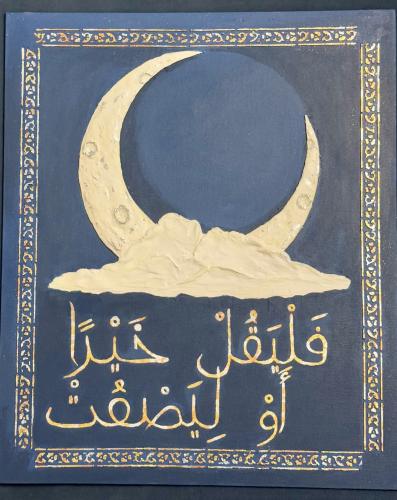 فَلْيَقُلْ خَيْرًا
أَوْ لِيَصْمُتْ